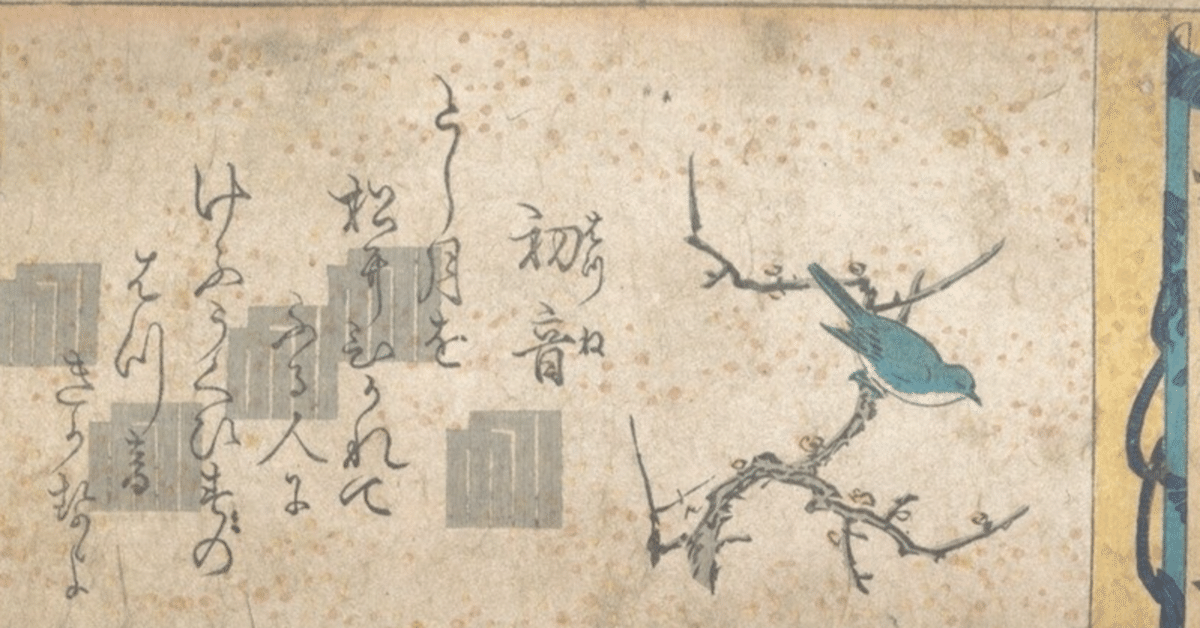 はつね
初音
とし月を
松にひかれて
ふる人に
けふうくひすの
はつ音
きかせよ